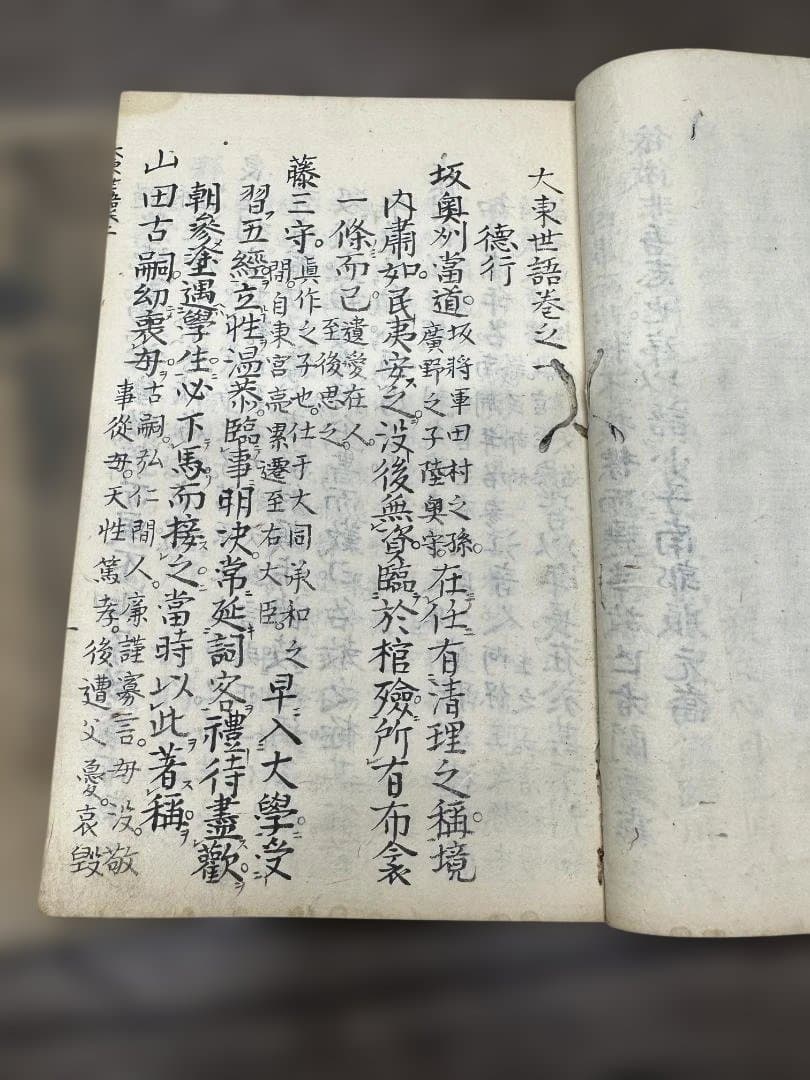 大東世語卷之一
德行
坂奥州當道。坂將軍田村之孫。廣野之子陸奥守。在任有清理之稱。境
内肅如。民夷安之。没後無資。臨於棺殮。所有布衾
一條而已。遺愛在人。至後思之。
藤三守。眞作之子也。仕于大同承和之間。自東宮亮累遷至右大臣。早入大學。受
習五經。立性温恭。臨事明決。常延詞客。禮待盡歡
朝參塗遇學生。必下馬而接之。當時以此著稱
山田古嗣。幼喪母。古嗣。弘仁間人。廉謹寡言。母没。敬
事從母。天性篤孝。後遭父憂。哀毀